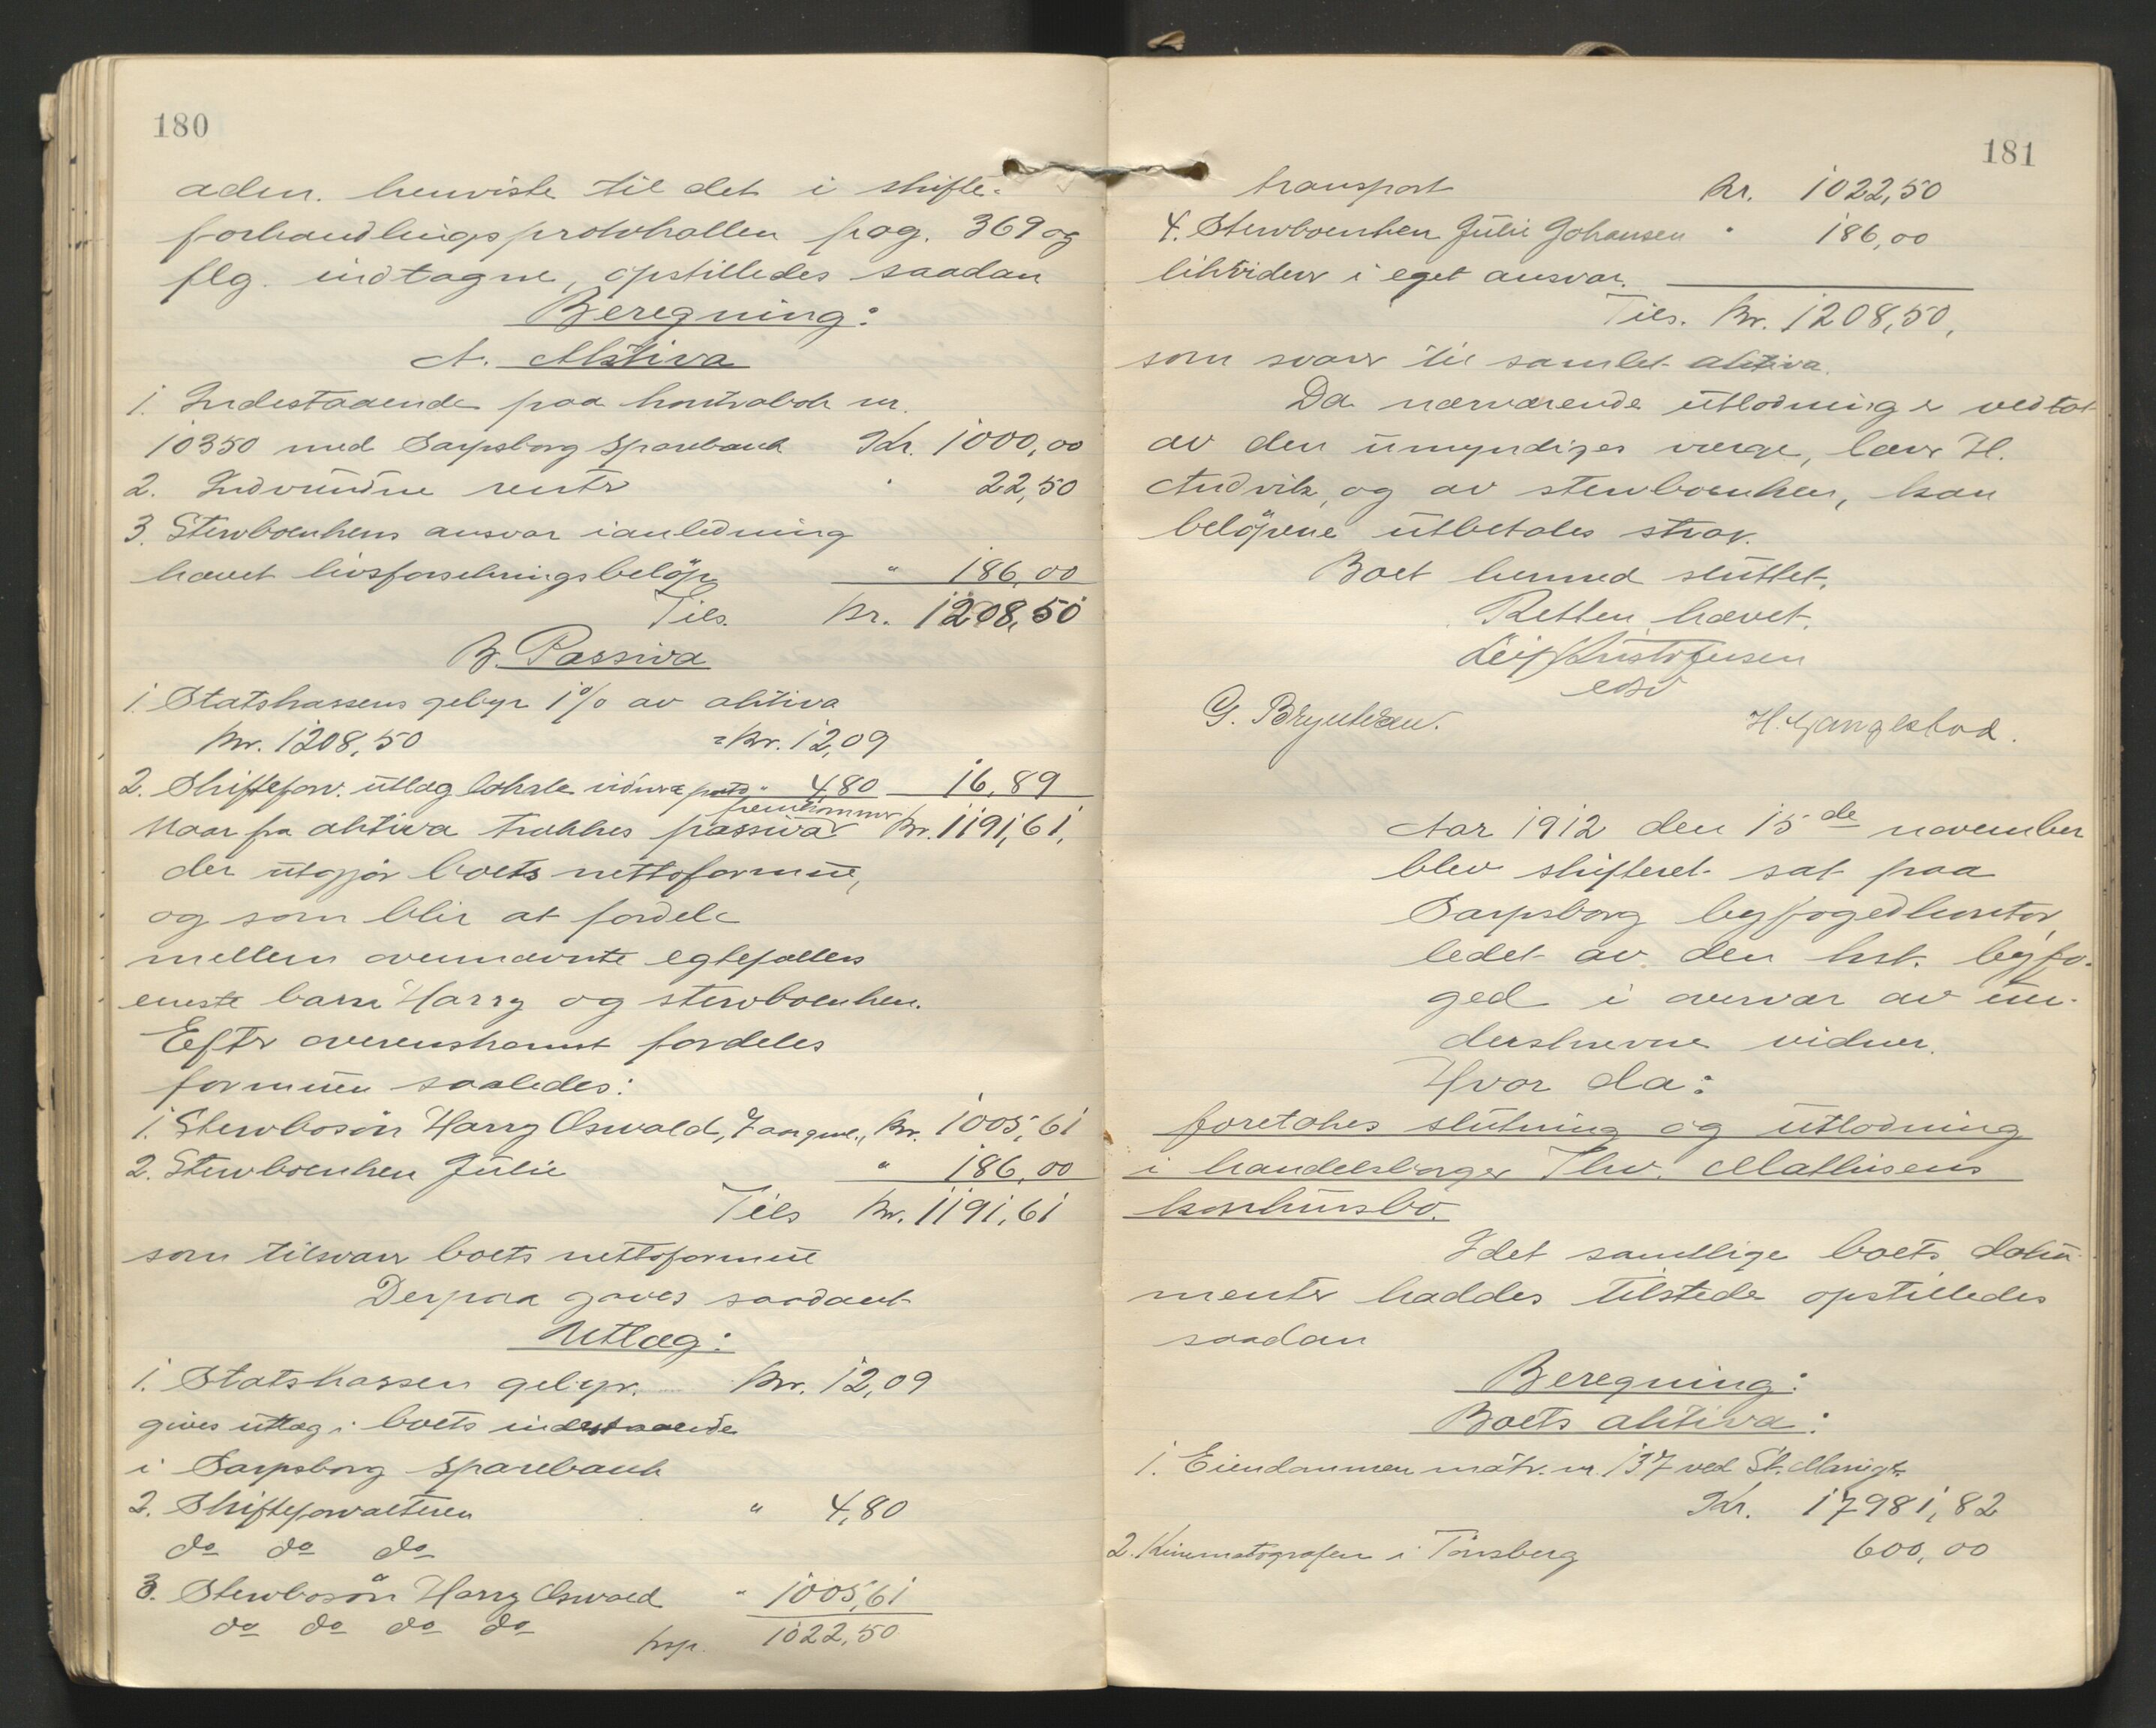 180
aden. henviste til det i skifte-
forhandlingsprotokollen pag. 369 og
flg. indtagne, opstilledes saadan
Beregning:
A. Aktiva
1. Indestaaende paa kontrabok nr.
10350 med Sarpsborg Sparebank Kr. 1000,00
2. Indvundne renter " 22,50
3. Stervboenkens ansvar i anledning
hævet livsforsikringsbeløp " 186,00
Tils. kr. 1208,50
B. Passiva
1. Statskassens gebyr 1% av aktiva
kr. 1208,50 = kr. 12,09
2. Skifteforv. utlæg lokale vidner porto " 4,80 16,89
Naar fra aktiva trækkes passiva fremkommer kr. 1191,61,
der utgjør boets nettoformue,
og som blir at fordele
mellem ovennævnte egtefællers
eneste barn Harry og stervboenken.
Efter overenskomst fordeles
formuen saaledes:
1. Stervbosøn Harry Oswald, 7 aar gml., kr. 1005,61
2. Stervboenken Julie " 186,00
Tils kr. 1191,61
som tilsvarer boets nettoformue
Derpaa gaves saadant
Utlæg:
1. Statskassen gebyr. kr. 12,09
gives utlæg i boets indestaaende
i Sarpsborg Sparebank
2. Skifteforvalteren " 4,80
do do do
3. Stervbosøn Harry Oswald " 1005,61
do do do do
trsp. 1022,50
181
transport kr. 1022,50
4. Stervboenken Julie Johansen " 186,00
likvideres i eget ansvar.
Tils. kr. 1208,50,
som svarer til samlet aktiva.
Da nærværende utlodning er vedtat
av den umyndiges verge, lærer H.
Andvik, og av stervboenken, kan
beløpene utbetales strax.
Boet hermed sluttet.
Retten hævet.
Leif Kristofersen
edsv
G. Bryntesen. H. Gangestad.
Aar 1912 den 15de november
blev skifteret sat paa
Sarpsborg byfogedkontor
ledet av den kst. byfo-
ged i overvær av un-
derskrevne vidner.
Hvor da:
foretokes slutning og utlodning
i handelsborger Thv. Mathisens
konkursbo.
Idet samtlige boets doku-
menter haddes tilstede opstilledes
saadan
Beregning:
Boets aktiva:
1. Eiendommen matr. nr. 137 ved St. Mariegt.
Kr. 17981,82
2. Kinematografen i Tønsberg 600,00